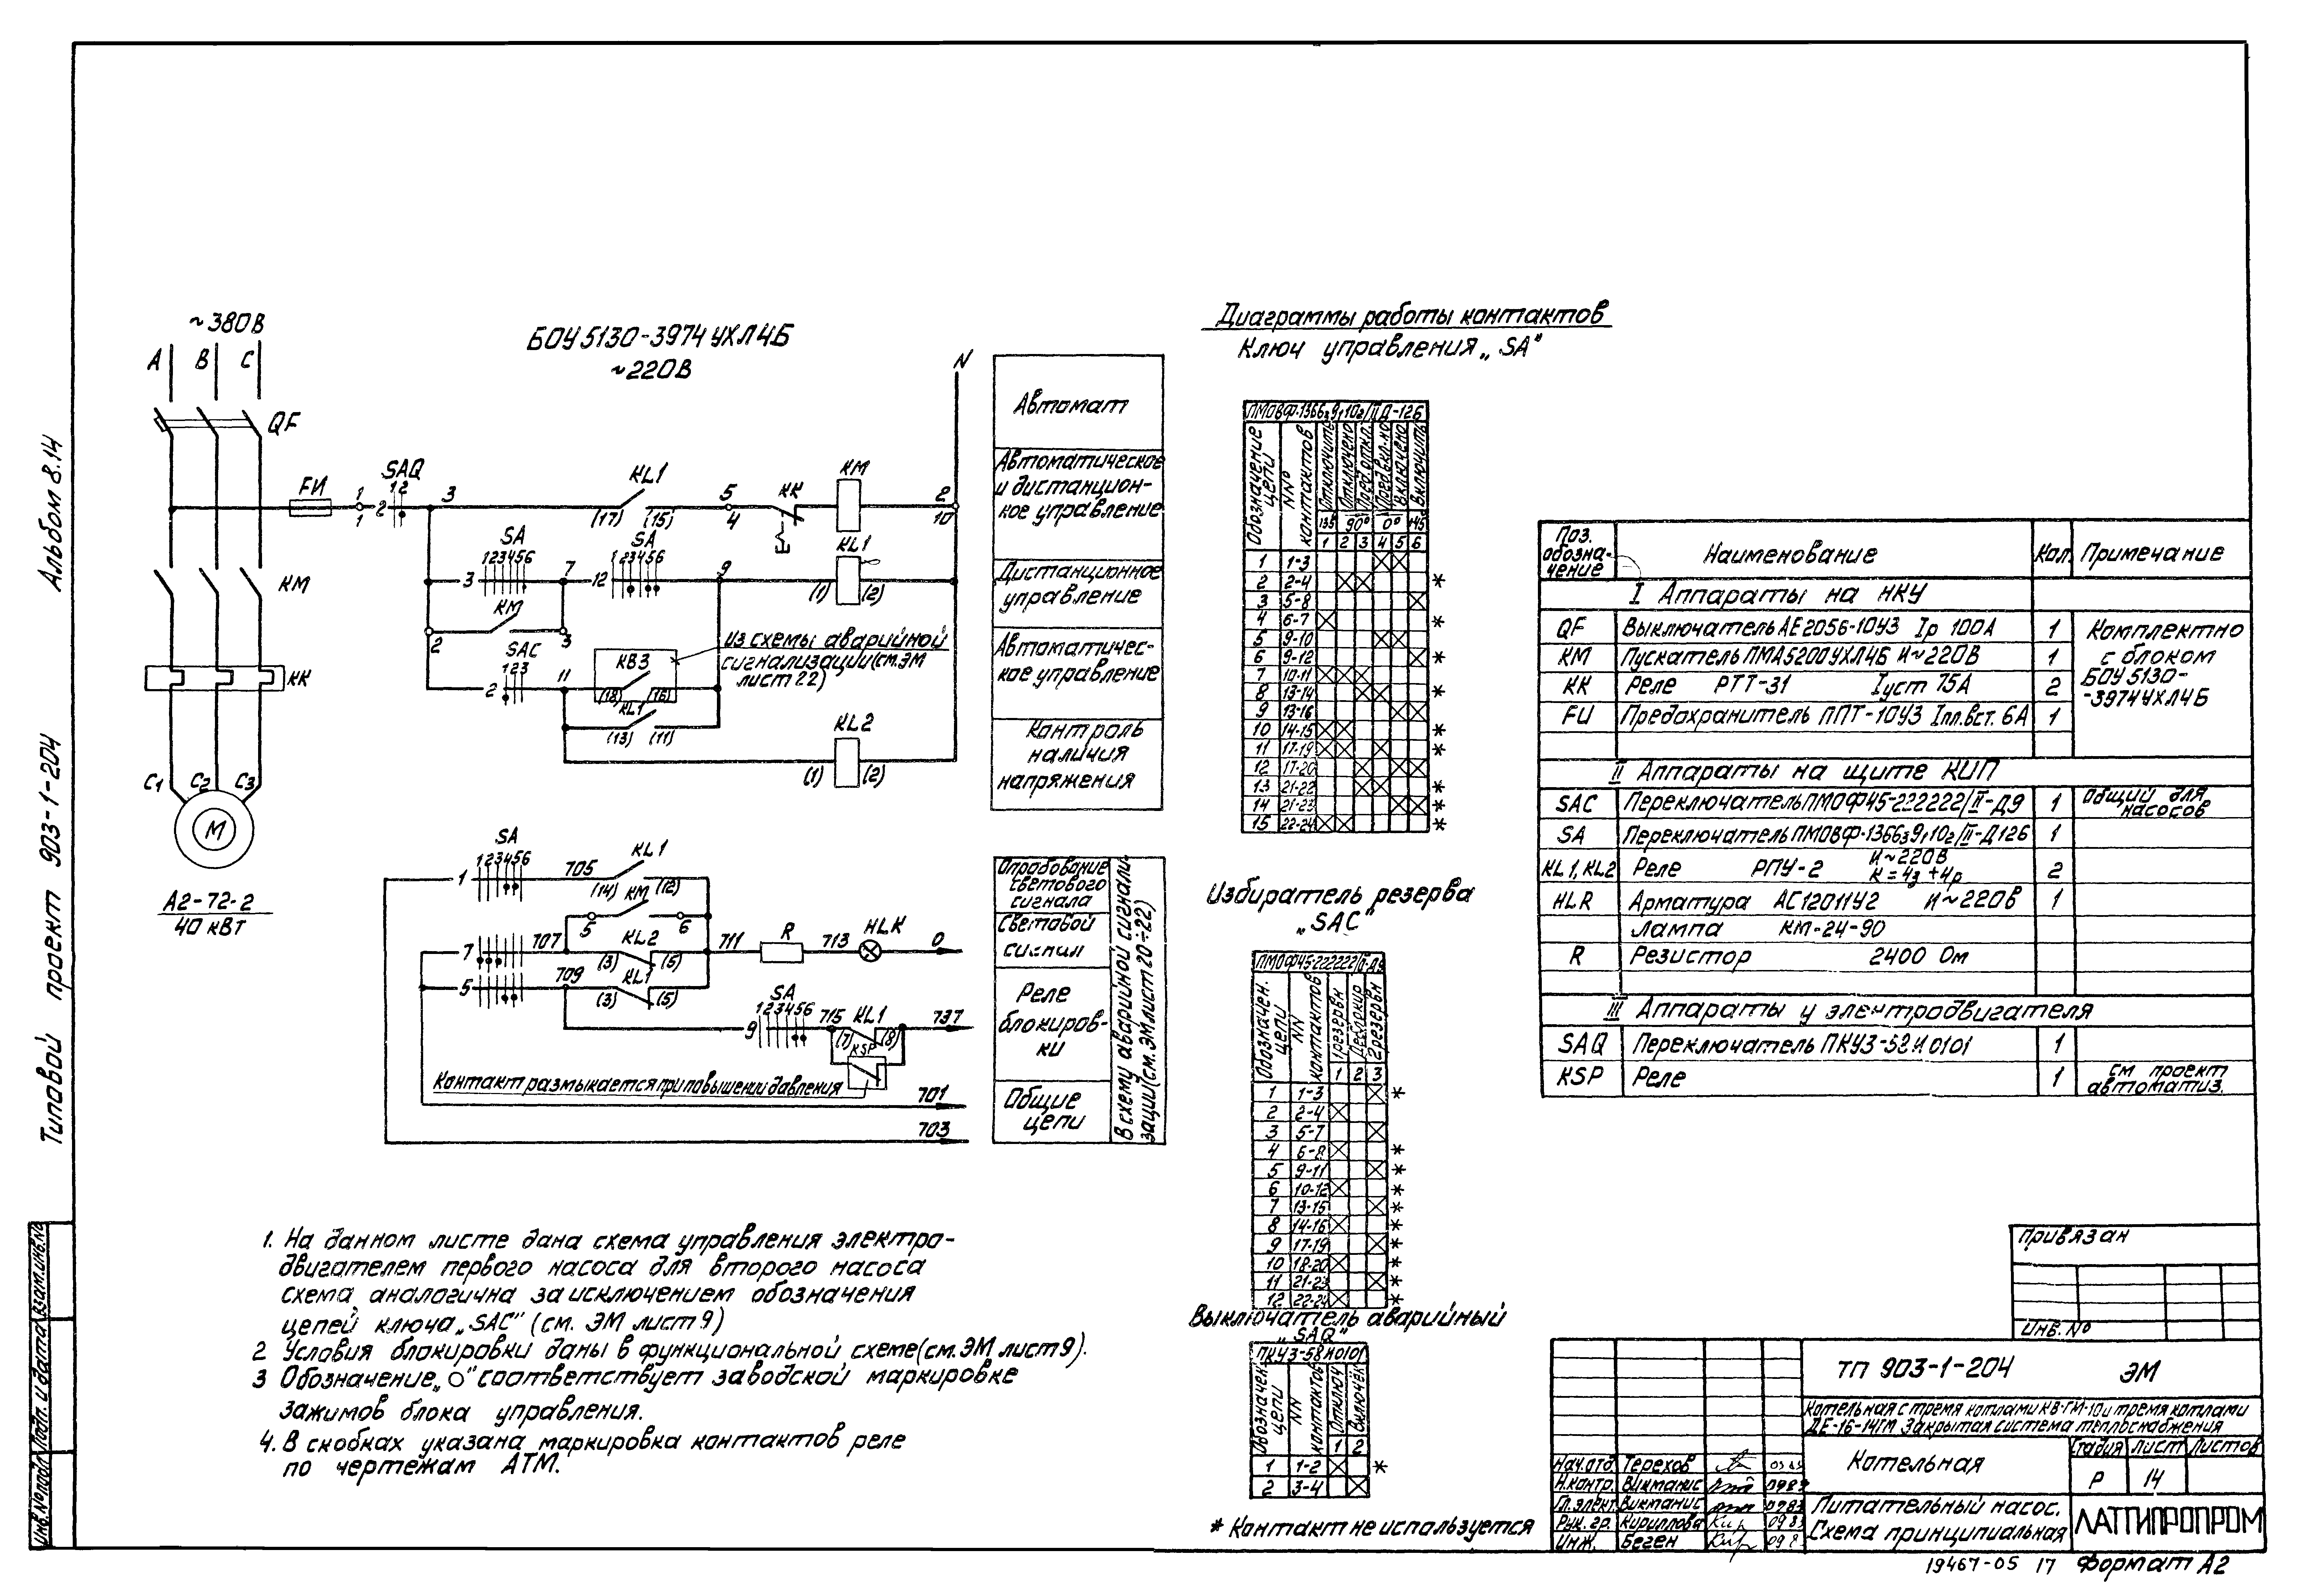 Альбом 8.14
Типовой проект 903-1-204
Инв.№подл. Подп. и дата Взам.инв.№
~380В
А В С
QF
КМ
КК
С1 С2 С3
М
А2-72-2
40 кВт
БОУ 5130-3974 УХЛ4Б
~220В
N
FИ 1 1 2 SAQ 12 3 KL1 (17) (15) 5 4 КК КМ 2 10
3 SA 123456 7 12 SA 123456 9 KL1 (1) (2)
2 КМ 3
2 SAC 123 11 КВ3 (18) (16)
Из схемы аварийной
сигнализации(см.ЭМ
лист 22)
KL1 (13) (11)
KL2 (1) (2)
Автомат
Автоматическое
и дистанцион-
ное управление
Дистанционное
управление
Автоматичес-
кое управление
Контроль
наличия
напряжения
1 SA 123456 705 KL1 (14) (12)
5 КМ 6
7 707 KL2 (3) (5) 711 R 713 HLK 0
5 709 KL1 (3) (5)
9 SA 123456 715 KL1 (7) (8) 737
KSP
Контакт размыкается при повышении давления
701
703
Опробование
светового
сигнала
Световой
сигнал
Реле
блокиров-
ки
Общие
цепи
В схему аварийной сигнали-
зации(см.ЭМ лист 20÷22)
1. На данном листе дана схема управления электро-
двигателем первого насоса для второго насоса
схема аналогична за исключением обозначения
цепей ключа „SAC" (см. ЭМ лист 9)
2 Условия блокировки даны в функциональной схеме(см.ЭМ лист 9).
3 Обозначение „О" соответствует заводской маркировке
зажимов блока управления.
4. В скобках указана маркировка контактов реле
по чертежам АТМ.
Диаграммы работы контактов
Ключ управления „SA"
ПМОВФ-1366₃9,10₂/II Д-126
Обозначение цепи №№ контактов Отключить Отключено Пред.откл. Пред.вкл.но Включено Включить
135 90° 0° 145
1 2 3 4 5 6
1 1-3
2 2-4 *
3 5-8
4 6-7 *
5 9-10
6 9-12 *
7 10-11
8 13-14 *
9 13-16
10 14-15 *
11 17-19 *
12 17-20
13 21-22 *
14 21-23 *
15 22-24 *
Избиратель резерва
„SAC"
ПМОФ45-222222/II-Д9
Обозначен. цепи NN контактов 1резервн Деблокир 2резервн
1 2 3
1 1-3 *
2 2-4
3 5-7
4 6-8 *
5 9-11 *
6 10-12 *
7 13-15 *
8 14-16 *
9 17-19 *
10 18-20 *
11 21-23 *
12 22-24 *
Выключатель аварийный
„SAQ"
ПКУ3-58И0101
Обозначен. цепи NN контактов Отключ Включен
1 2
1 1-2 *
2 3-4
* Контакт не используется
Поз. обозна- чение Наименование Кол. Примечание
I Аппараты на НКУ
QF Выключатель АЕ2056-10У3 Iр 100А 1 Комплектно
КМ Пускатель ПМА5200УХЛ4Б И~220В 1 с блоком
КК Реле РТТ-31 Iуст 75А 2 БОУ 5130-
FU Предохранитель ППТ-10У3 Iпл.вст. 6А 1 -3974УХЛ4Б
II Аппараты на щите КИП
SAC Переключатель ПМОФ45-222222/II-Д9 1 Общий для насосов
SA Переключатель ПМОВФ-1366₃9,10₂/II-Д126 1
KL1, KL2 Реле РПУ-2 И~220В К=4з+4р 2
HLR Арматура АС1201У2 И~220В 1
Лампа КМ-24-90
R Резистор 2400 Ом
III Аппараты у электродвигателя
SAQ Переключатель ПКУ3-58И0101 1
KSP Реле 1 см проект автоматиз.
Привязан
Инв. №
ТП 903-1-204 ЭМ
Котельная с тремя котлами КВ-ГМ-10 и тремя котлами
ДЕ-16-14ГМ Закрытая система теплоснабжения
Котельная
Стадия Лист Листов
Р 14
Питательный насос.
Схема принципиальная
ЛАТГИПРОПРОМ
Нач.отд Терехов
Н.контр. Виктанис
Гл.элект. Виктанис
Рук. гр. Кириллова
Инж. Беген
19467-05 17 Формат А2